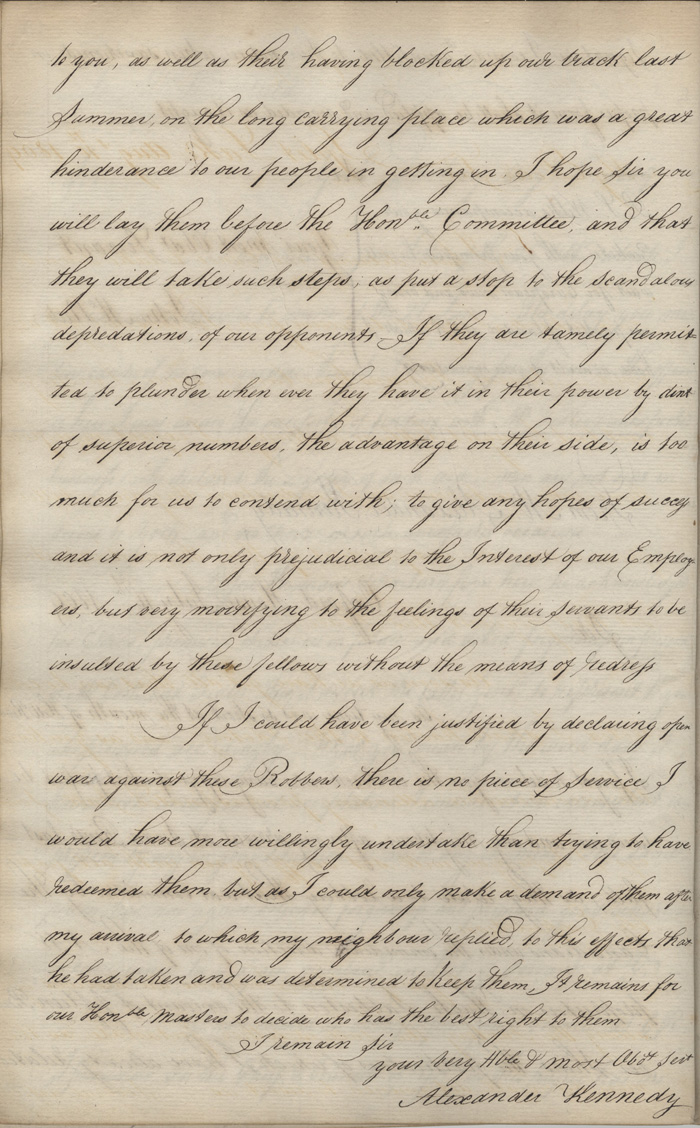 to you, as well as their having blocked up our track last
Summer, on the long carrying place which was a great
hinderance to our people in getting in. I hope Sir you
will lay them before the Hon.ble Committee, and that
they will take such steps, as put a stop to the scandalous
depredations, of our opponents – If they are tamely permit-
ted to plunder when ever they have it in their power by dint
of superior numbers, the advantage on their side, is too
much for us to contend with; to give any hopes of success
and it is not only prejudicial to the Interest of our Employ-
ers, but very mortifying to the feelings of their Servants to be
insulted by these fellows without the means of redress
If I could have been justified by declaring open
war against these Robbers, there is no piece of Service I
would have more willingly undertake than trying to have
redeemed them, but as I could only make a demand of them after
my arrival to which my neighbour replied, to this effects that
he had taken and was determined to keep them, It remains for
our Honble Masters to decide who has the best right to them
I remain Sir
your very Hble & most Obdt Sert
Alexander Kennedy